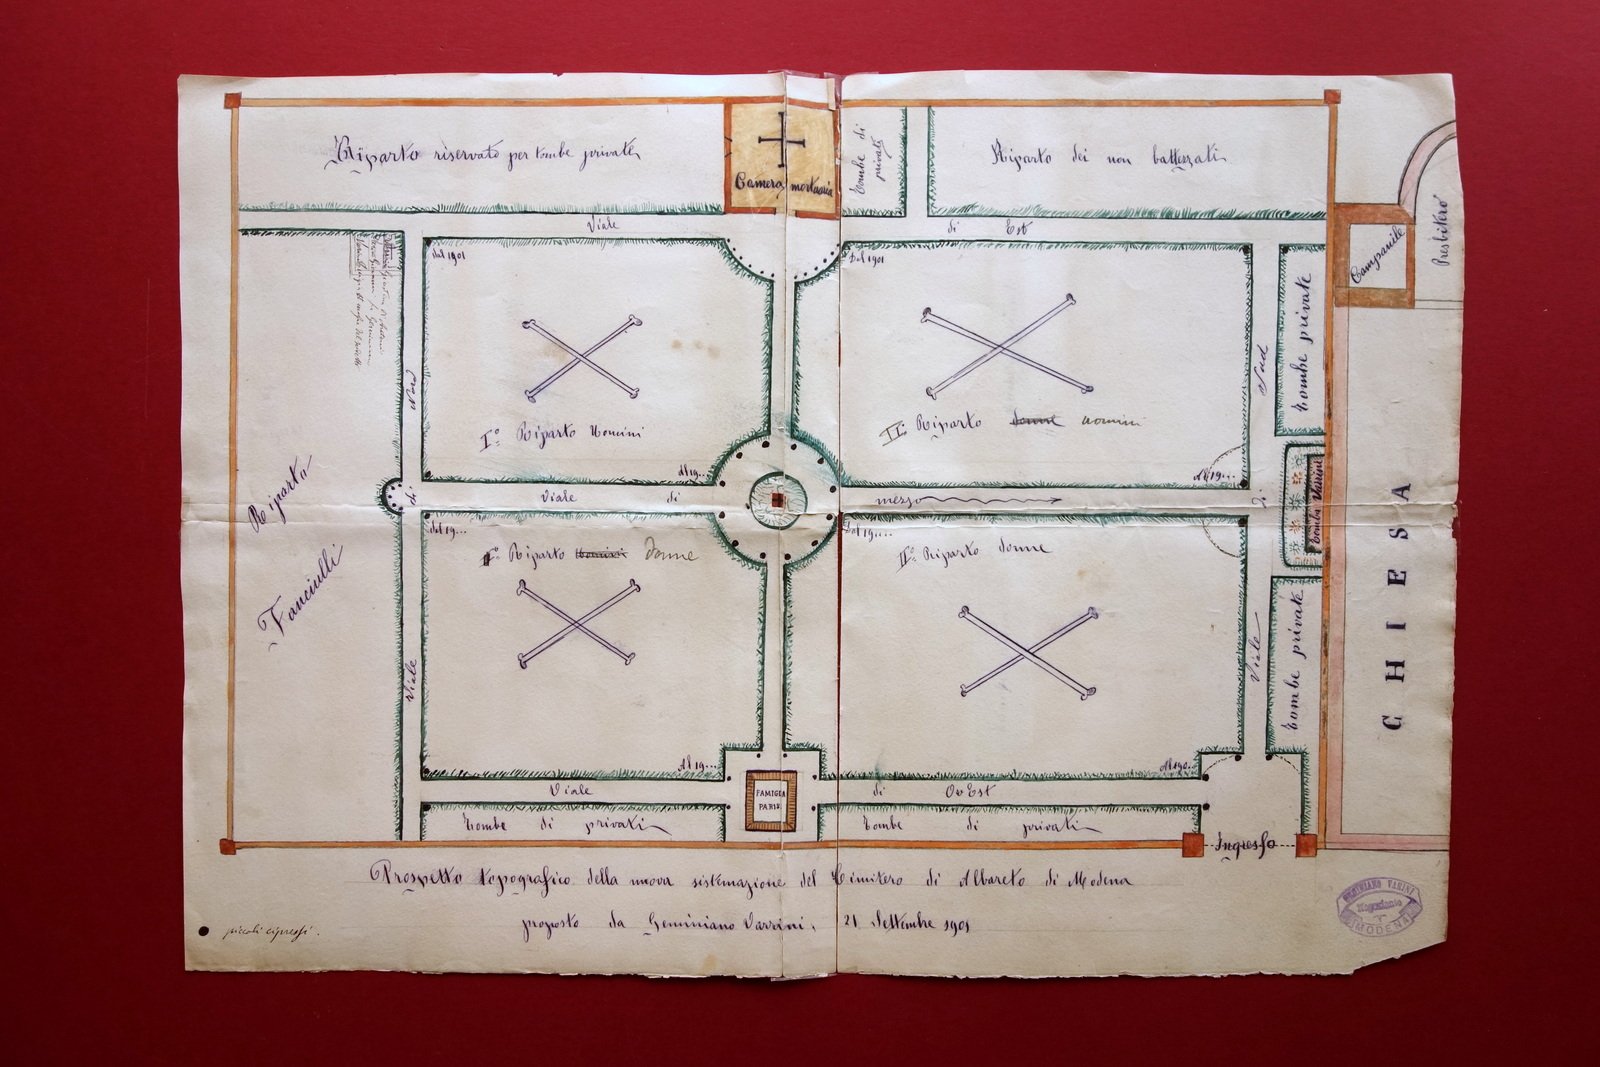 Riparto riservato per tombe private
Camera mortuaria
Tombe di
privati
Riparto dei non battezzati
Viale
di Est
Dal 1901
Dal 1901
Campanile
Presbitero
Tombe private
Nord
Sud
I° Riparto Uomini
II° Riparto donne uomini
Al 19...
Al 19...
Viale di
mezzo
di
di
Tomba Varini
Riparto
Fanciulli
dal 19...
Dal 19...
I° Riparto Uomini donne
II° Riparto donne
CHIESA
Viale
Viale
Tombe private
Al 19...
Al 190..
Viale
FAMIGLIA
PARISI
di OvEst
Tombe di privati
Tombe di privati
Ingresso
Prospetto topografico della nuova sistemazione del Cimitero di Albareto di Modena
proposto da Geminiano Varrini, 21 Settembre 1901
piccoli cipressi.
GEMINIANO VARINI
Negoziante
MODENA